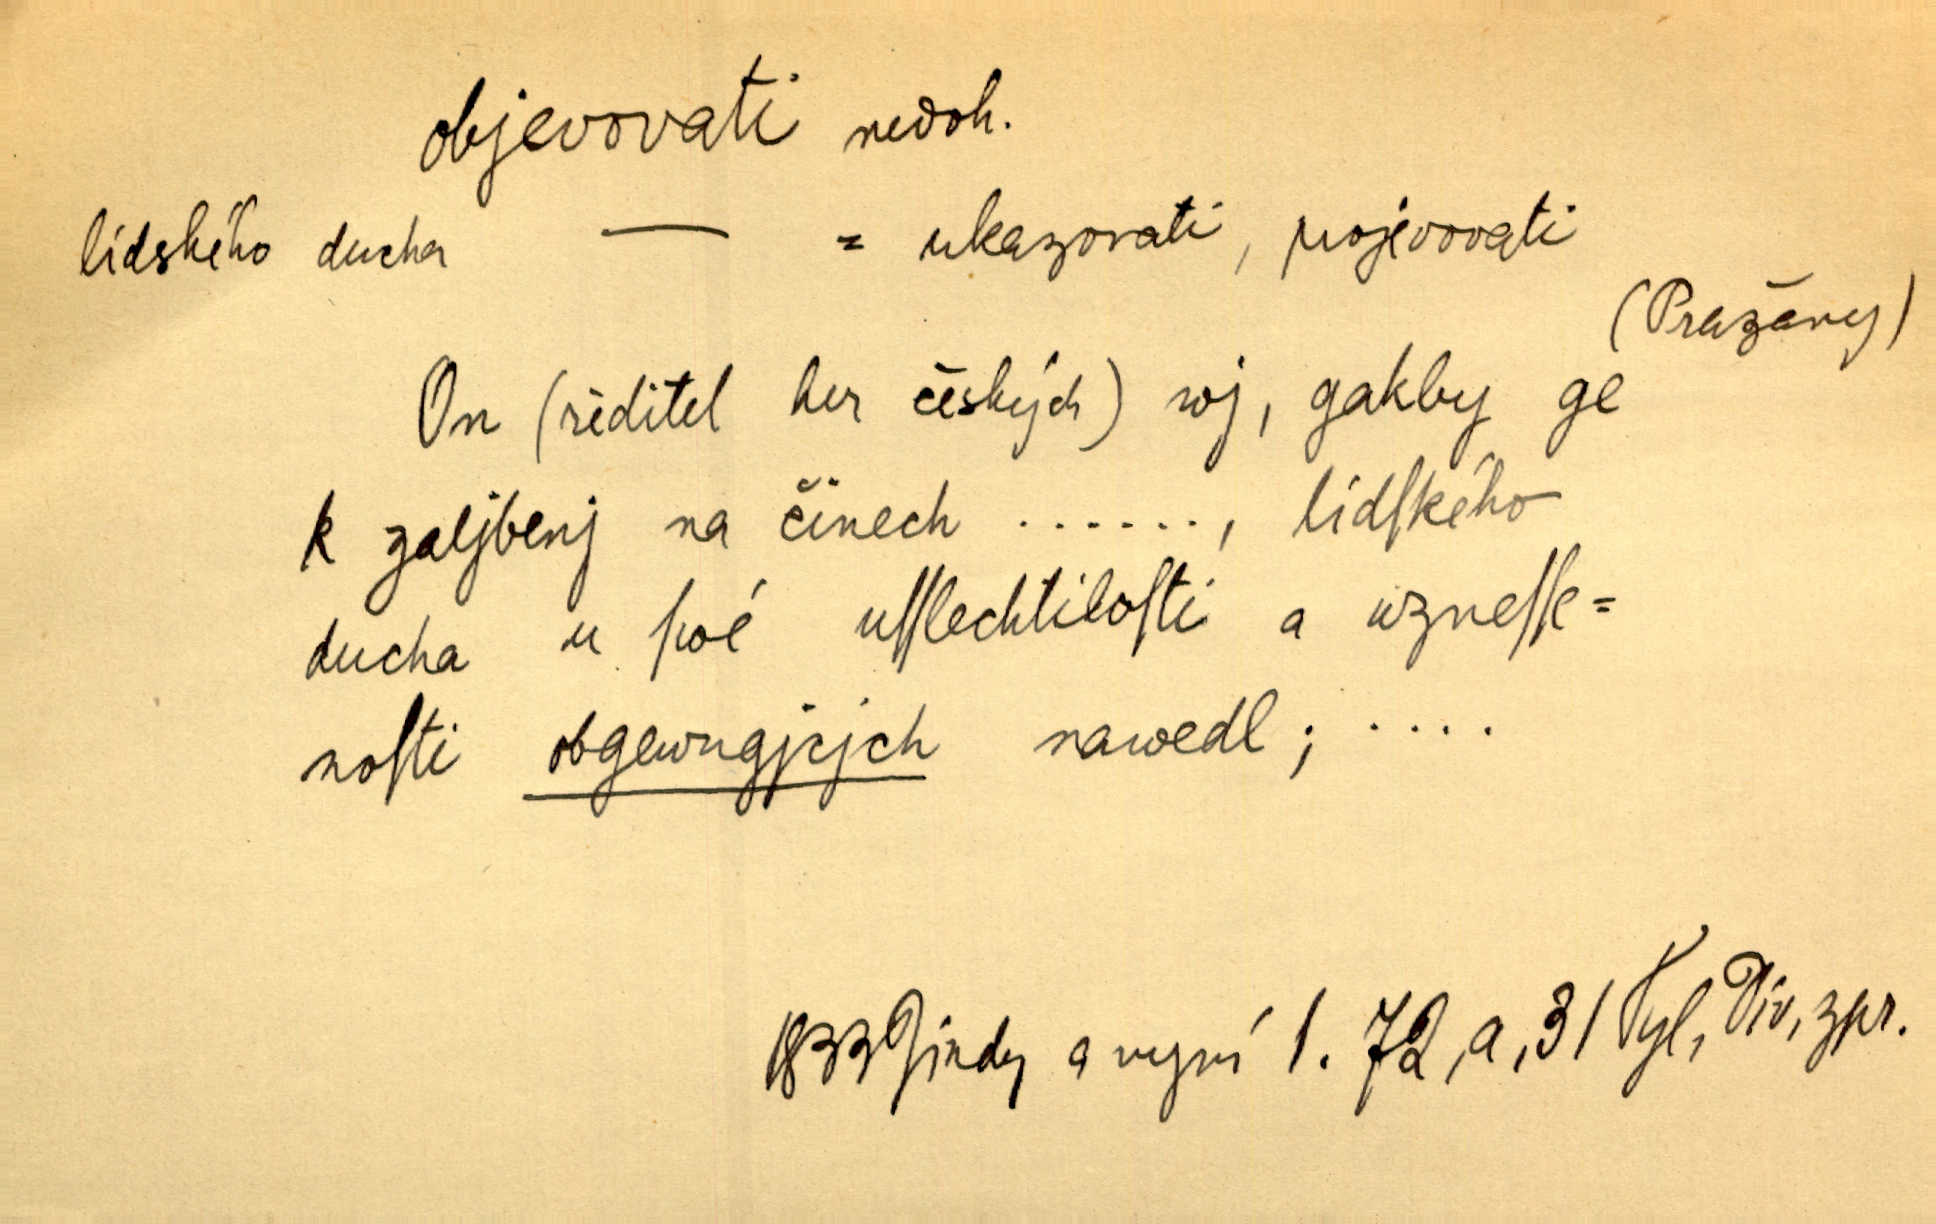 objevovati nedok.
lidského ducha — = ukazovati, projevovati
(Pražany)
On (ředitel her českých) wj, gakby ge
k zaljbenj na činech ......., lidſkého
ducha u ſwé uſſlechtiloſti a wzneſſe=
noſti obgewugjcjch nawedl; ....
1833 Jindy a nyní 1. 72, a, 31 Tyl, Div. zpr.